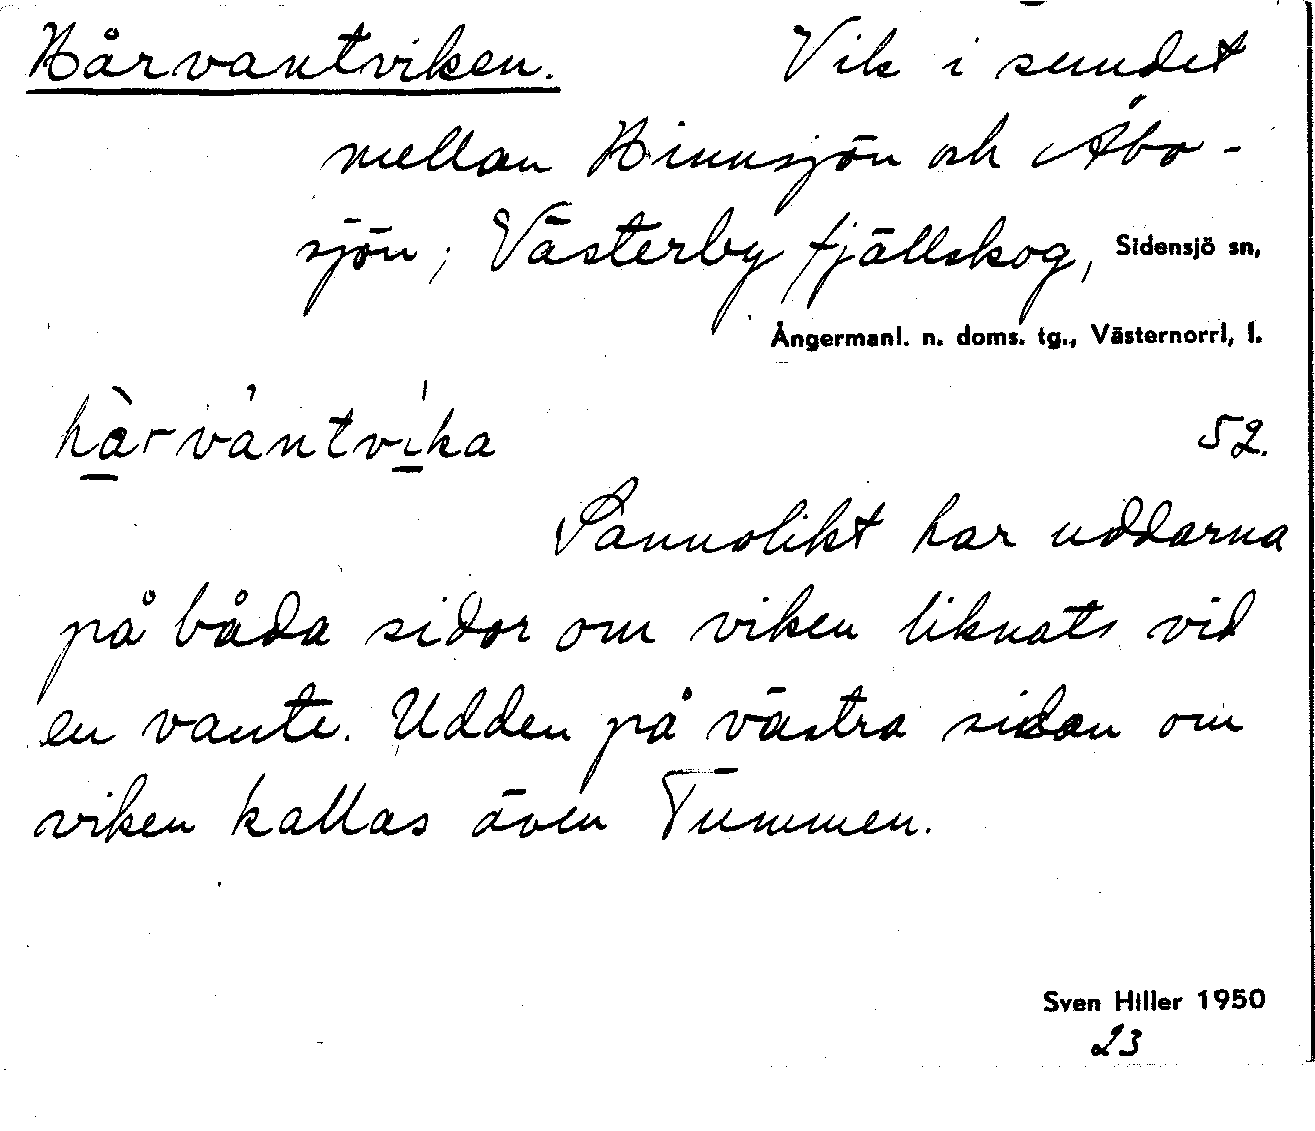 Hårvantviken. Vik i sundet
mellan Hinnsjön och Åbo-
sjön; Västerby fjällskog, Sidensjö sn,
Ångermanl. n. doms. tg., Västernorrl. l.
52.
Sannolikt har uddarna
på båda sidor om viken liknats vid
en vante. Udden på västra sidan om
viken kallas även Tummen.
Sven Hiller 1950
23